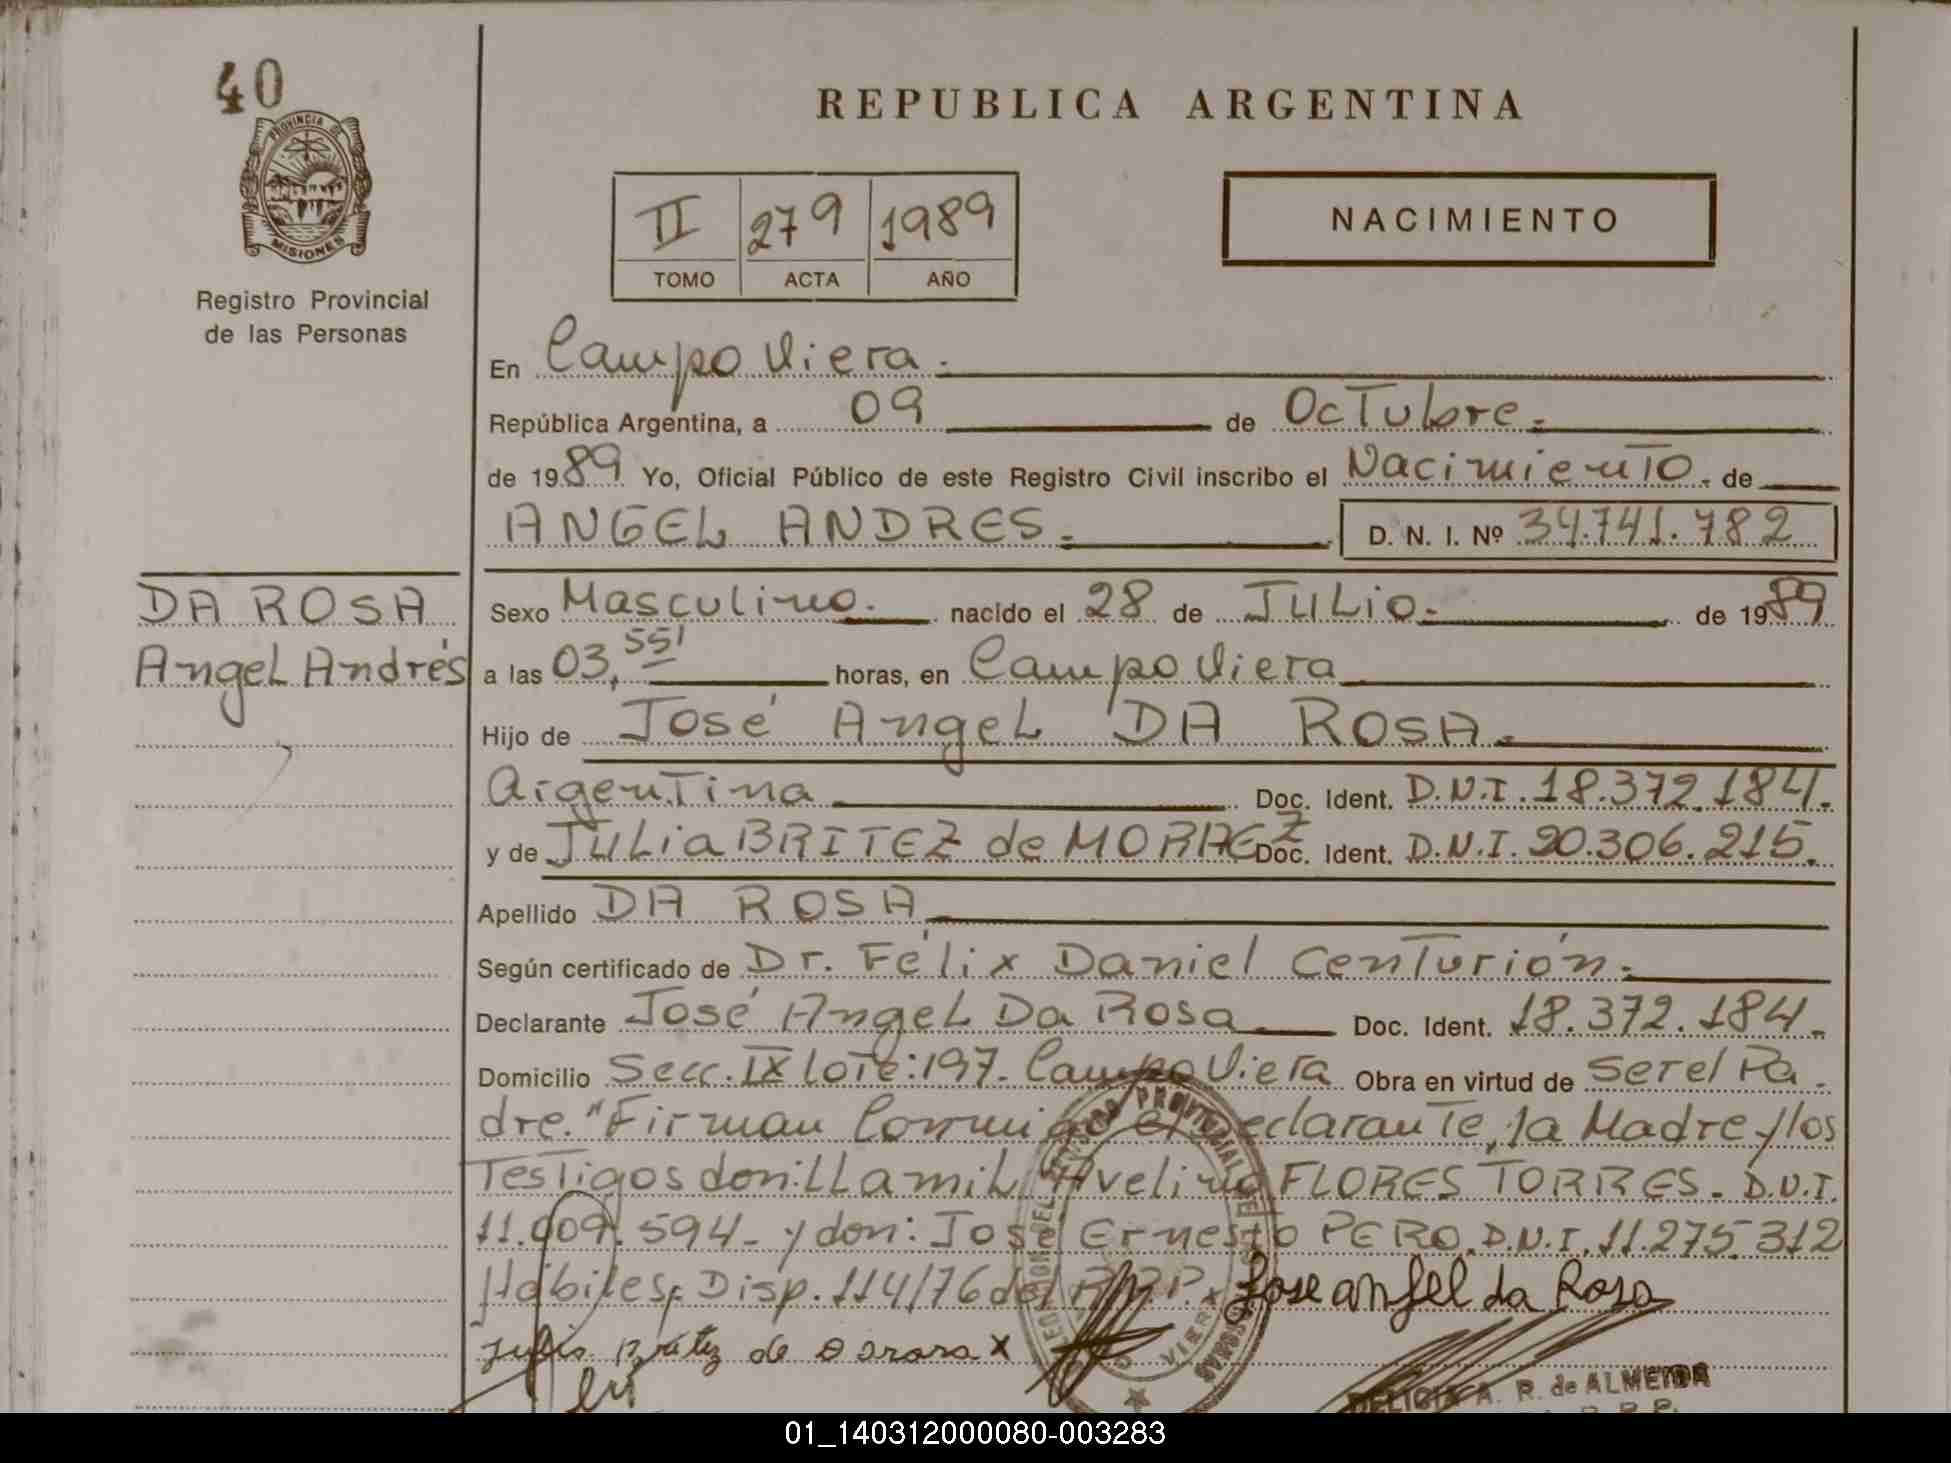 40
PROVINCIA DE
MISIONES
Registro Provincial
de las Personas
REPUBLICA ARGENTINA
II 279 1989
TOMO ACTA AÑO
NACIMIENTO
En Campo Viera.
República Argentina, a 09 de Octubre.
de 1989 Yo, Oficial Público de este Registro Civil inscribo el Nacimiento. de
ANGEL ANDRES. D. N. I. Nº 34.741.782
DA ROSA
Angel Andrés
Sexo Masculino. nacido el 28 de Julio. de 1989
a las 03,55' horas, en Campo Viera
Hijo de José Angel DA ROSA.
Argentina Doc. Ident. D.N.I. 18.372.184.
y de Julia BRITEZ de MORAEZ Doc. Ident. D.N.I. 20.306.215.
Apellido DA ROSA
Según certificado de Dr. Félix Daniel Centurión.
Declarante José Angel Da Rosa Doc. Ident. 18.372.184.
Domicilio Secc. IX Lote: 197. Campo Viera Obra en virtud de ser el Pa
dre. "Firman Conmigo el declarante, la Madre y los
Testigos don: LLamil Avelino FLORES TORRES. D.N.I.
11.009.594 - y don: José Ernesto PERO. D.N.I. 11.275.312
Hábiles, Disp. 114/76 del R.P.P. x Jose angel da Rosa
de x
R. de ALMEIDA
R. P. P.
01_140312000080-003283